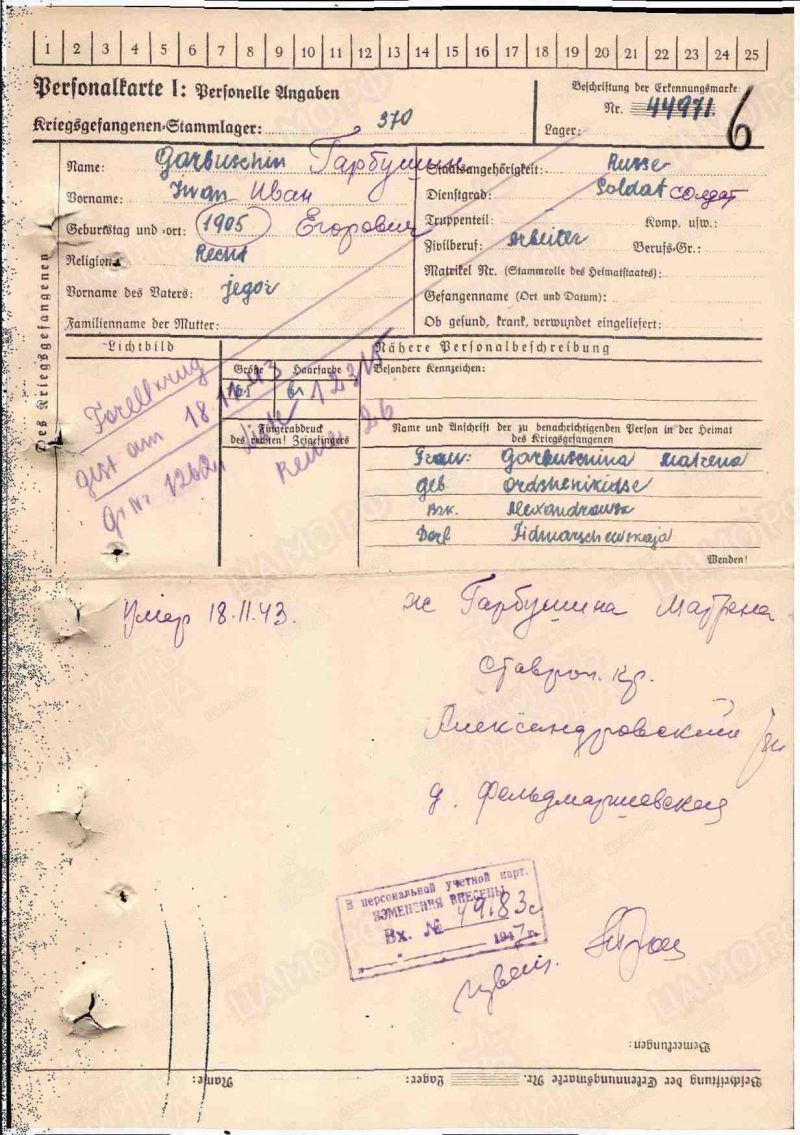 1 2 3 4 5 6 7 8 9 10 11 12 13 14 15 16 17 18 19 20 21 22 23 24 25
Personalkarte I: Personelle Angaben
Beschriftung der Erkennungsmarke:
Nr. 44971
6
Kriegsgefangenen-Stammlager: 370
Lager:
Des Kriegsgefangenen
Name: Garbuschin Гарбушин
Staatsangehörigkeit: Russe
Vorname: Iwan Иван
Dienstgrad: Soldat солдат
Geburtstag und -ort: 1905 Егорович
Truppenteil: Komp. usw.:
Religion: Recht
Zivilberuf: Arbeiter Berufs-Gr.:
Matrikel Nr. (Stammrolle des Heimatstaates):
Vorname des Vaters: jegor
Gefangenname (Ort und Datum):
Familienname der Mutter:
Ob gesund, krank, verwundet eingeliefert:
Lichtbild
Nähere Personalbeschreibung
Größe Haarfarbe
Besondere Kennzeichen:
Forellkrug
gest am 18.11.43
12315
Reihe 26
Fingerabdruck
des rechten! Zeigefingers
Name und Anschrift der zu benachrichtigenden Person in der Heimat
des Kriegsgefangenen
Frau: Garbuschina Matrena
geb Ordshenikidse
Dorf
Wenden!
Умар 18.11.43.
ж Гарбушина Матрена
Ставроп. кр.
Александровский
д. Фельдмаршевская
В персональной учетной карт.
ИЗМЕНЕНИЯ ВНЕСЕНЫ
Вх. № 49183с
1947 г.
Bemerkungen:
Name: Lager: Beschriftung der Erkennungsmarke Nr.